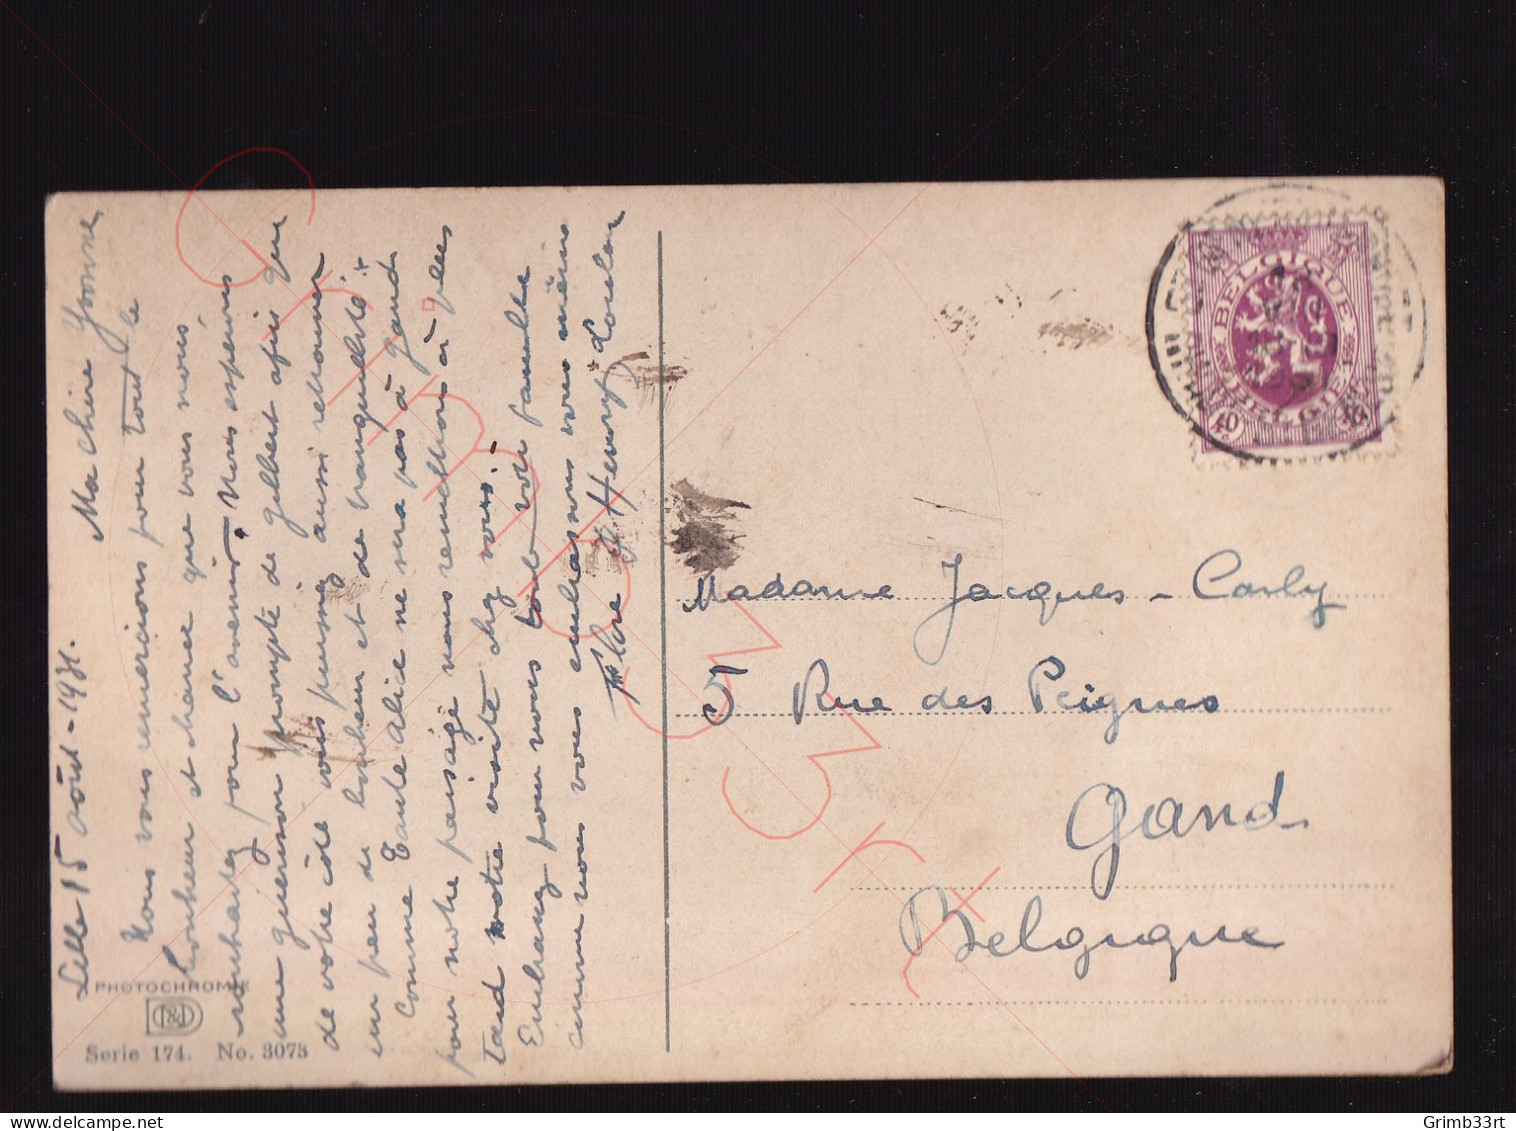 Lille 15 août - 1931.
Ma chère Yvonne,
Nous vous remercions pour tout le
bonheur et chance que vous nous
souhaitez pour l'avenir. Nous espérons
une guérison prompte de Gilbert afin que
de votre côté vous puissiez aussi retrouver
un peu de bonheur et de tranquillité.
Comme Tante Alice ne sera pas à Gand
pour notre passage nous remettrons à plus
tard notre visite chez vous.
Embrassez pour nous toute votre famille
comme nous vous embrassons vous même
Flore & Henry
PHOTOCHROMIE
D&D
Serie 174. No. 3073
BELGIQUE
BELGIË
40 c
40 c
Madame Jacques - Carly
5 Rue des Peignes
Gand
Belgique
delcampe.net
Grimb33rt